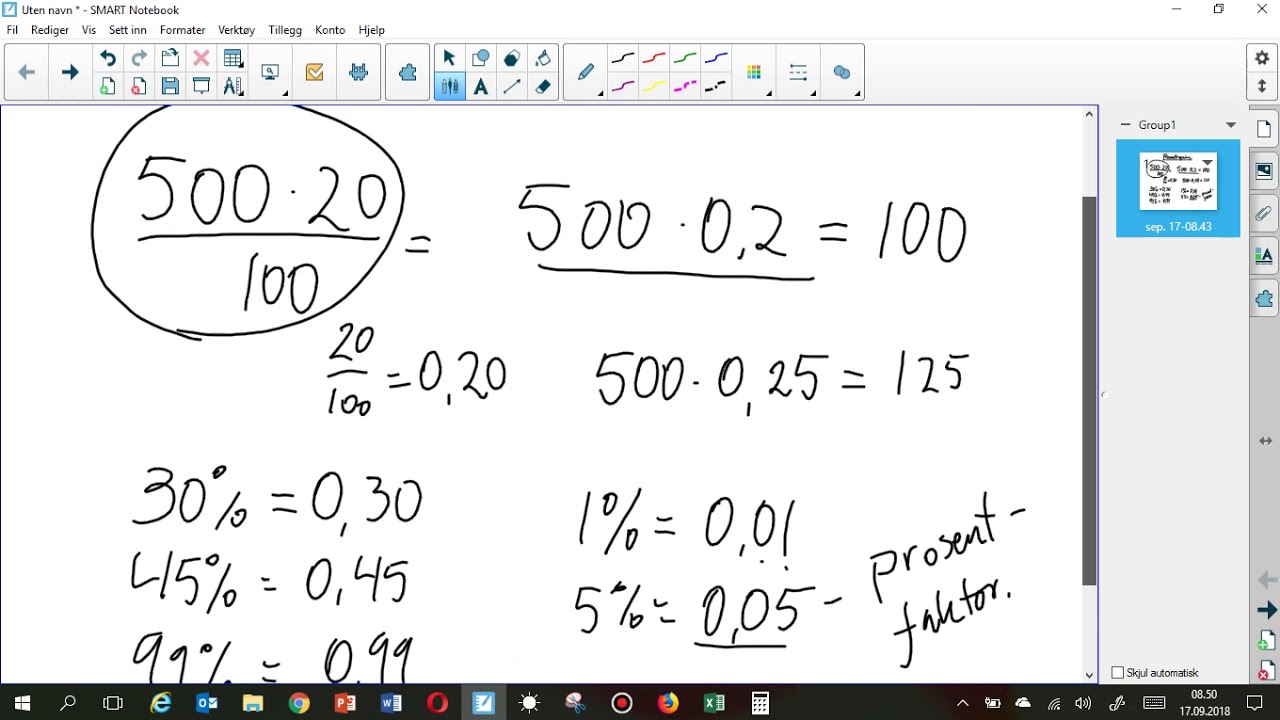 Uten navn * - SMART Notebook
Fil Rediger Vis Sett inn Formater Verktøy Tillegg Konto Hjelp
500 · 20
100
=
500 · 0,2 = 100
20
100
= 0,20
500 · 0,25 = 125
30% = 0,30
45% = 0,45
99% = 0,99
1% = 0,01
5% = 0,05 - prosent-
faktor.
Group1
sep. 17-08.43
Skjul automatisk
08.50
17.09.2018